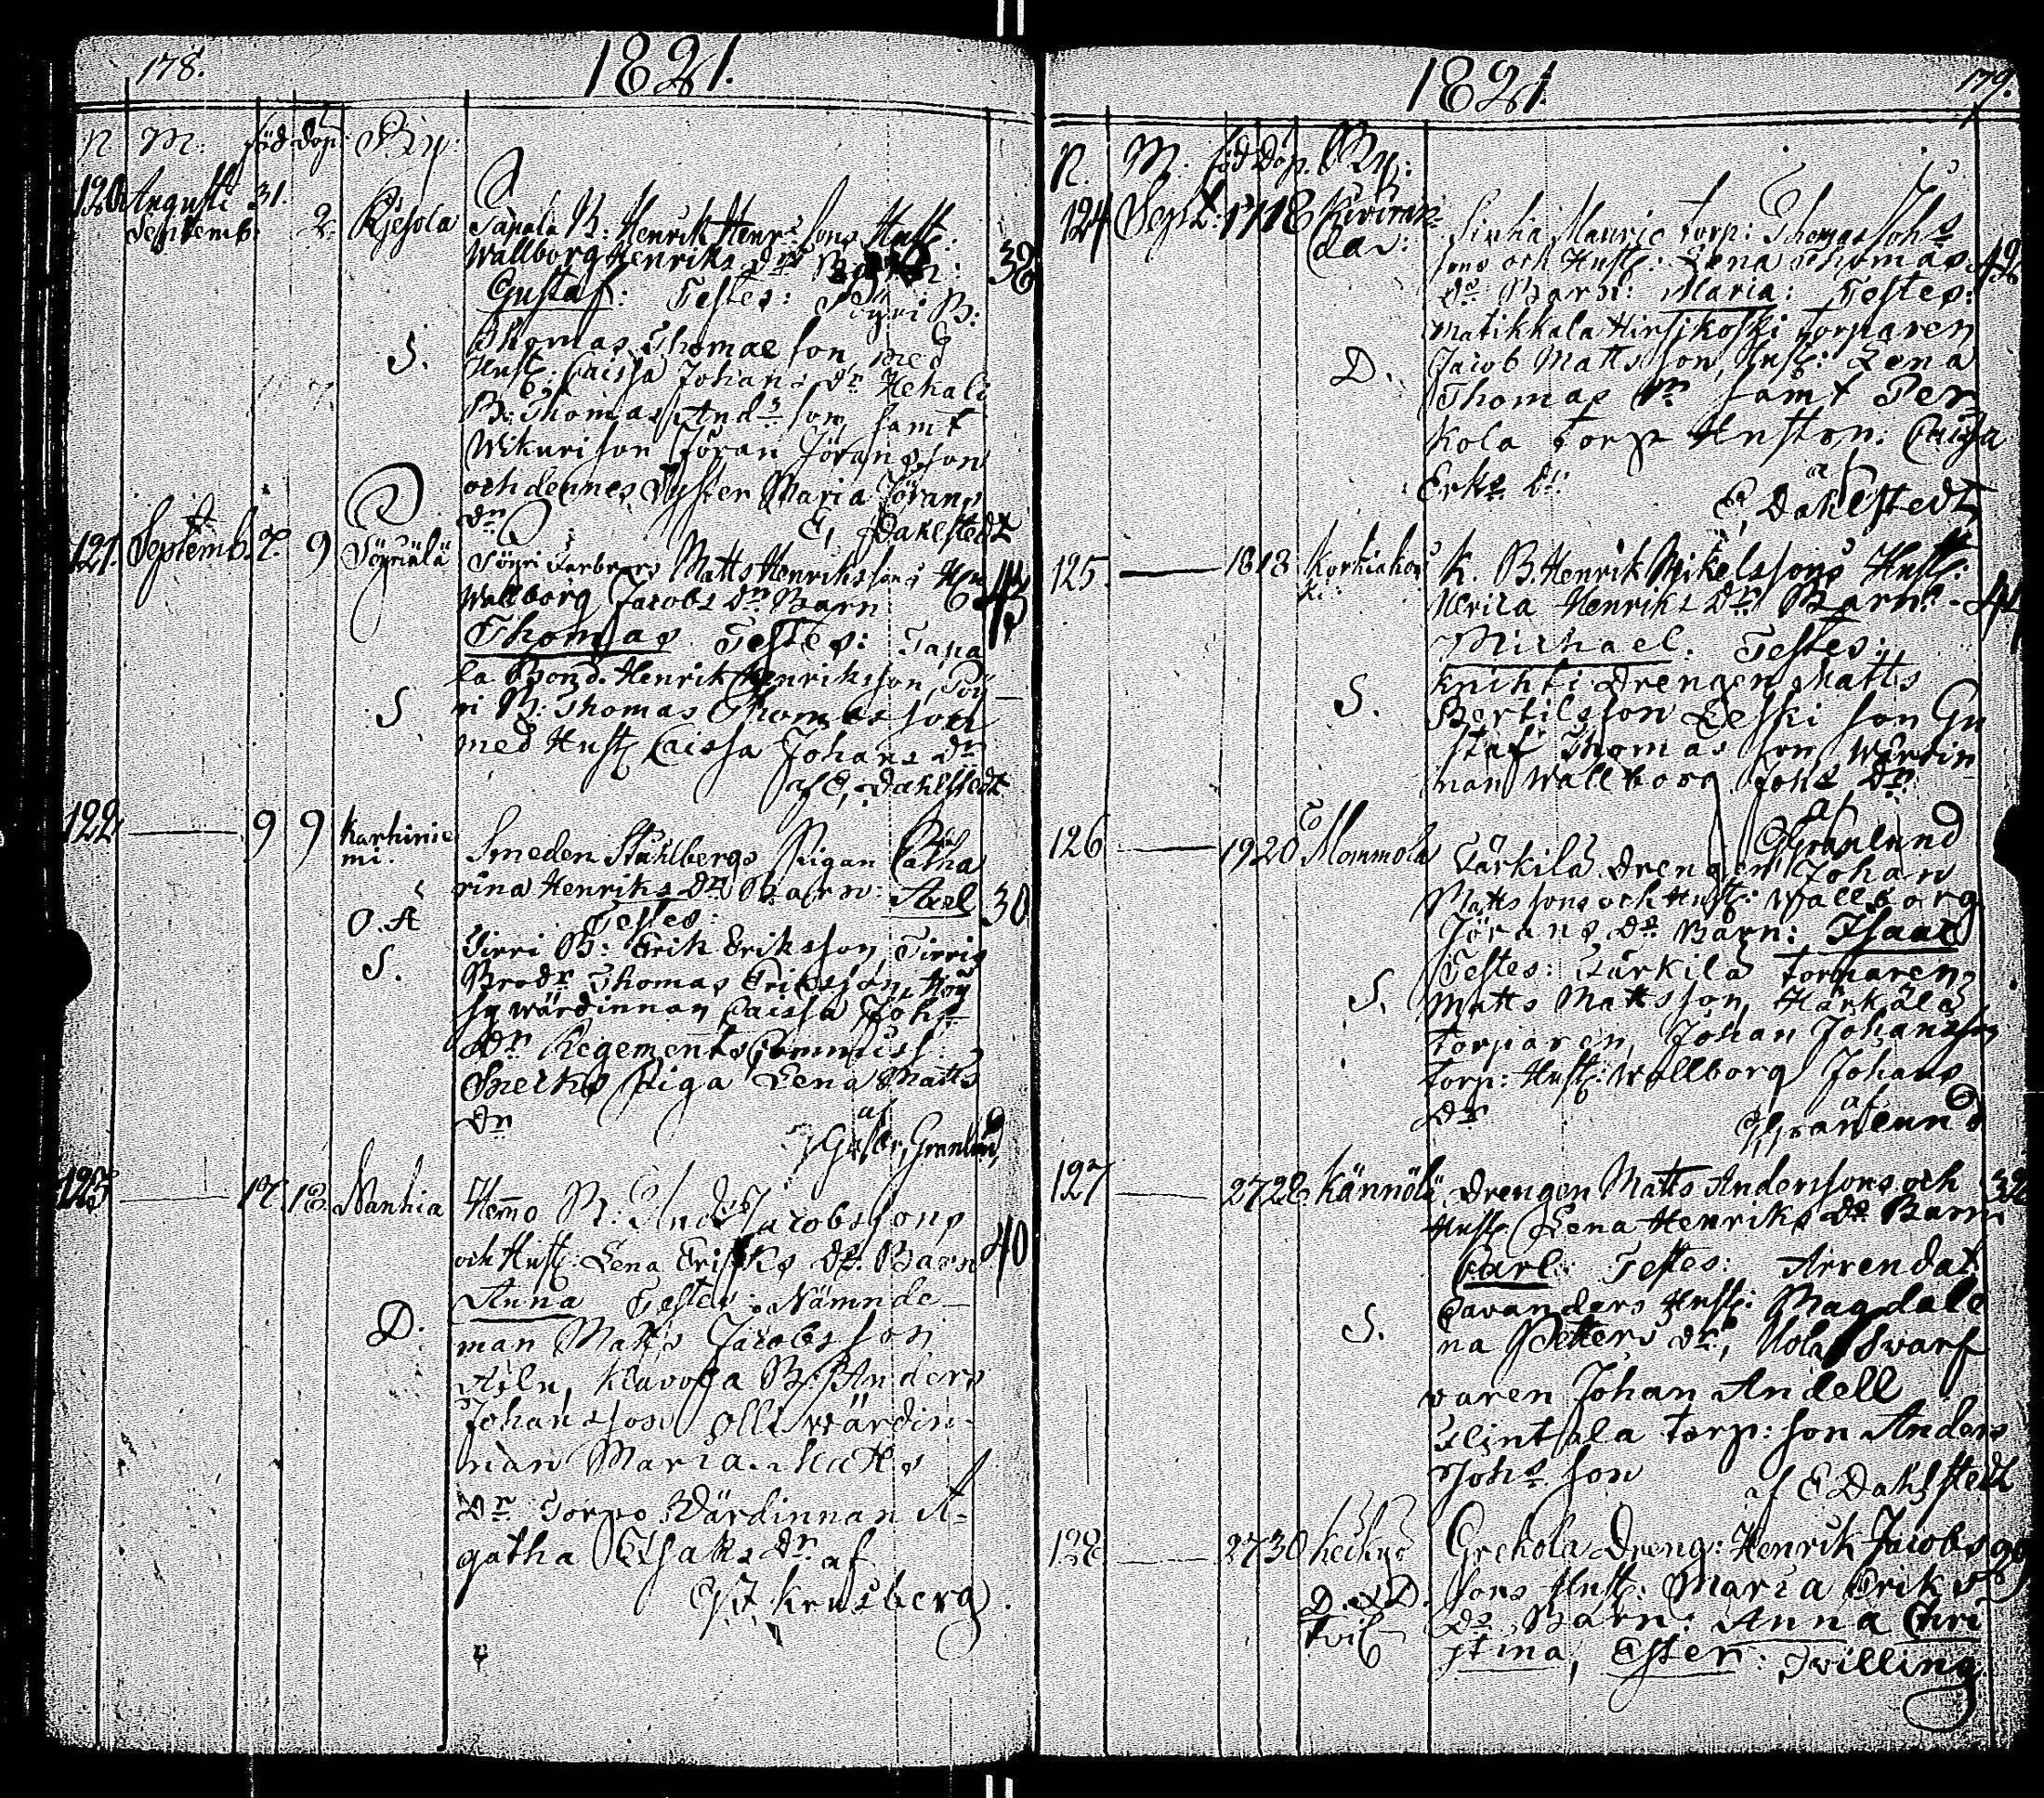 178.
1821.
N M: född Döp: By:
120 Augusti 31.
Septemb: 2. Kjesola Tapala B: Henrik Henrs sons Hust:
Wallborg Henriks dr Barn: 38
Gustaf: Testes: Pöyri B:
Thomas Thomae son, med
S. Hust: Caissa Johans dr Hekali
B: Thomas Andrs son, samt
Wikuri son Jöran Jöransson
och dennes Syster Maria Jörans
dr E, Dahlstedt
121. Septemb. 7. 9 Söyriälä Söyri Farbrors Matts Henrikssons Hu
Wallborg Jacobs dr Barn 43
Thomas Testes: Tapa
la Bond. Henrik Henriksson, Pöy
S ri B: Thomas Thomasson
med Hust Caissa Johans dr
af E, Dahlstedt
122 9 9 Karhinie
mi. Smeden Ståhlbergs Pigan Catha
rina Henriks dr Barn: Axel 30
O. Ä Testes:
S. Sirri B: Erik Eriksson, Sirris
Brodr Thomas Eriksson, Höy
sy wärdinnan Caissa Johs
dr Regements Commiss:
Snecks Piga Lena Matts
dr
af
Granlund
123 17. 18. Nanhia Hemo B: Ands Jacobssons
och Hust: Lena Eriks dr. Barn 40
Anna Testes: Nämnde
D. man Matts Jacobsson
Ailu, Klavola B: Anders
Johansson Olli wärdin-
nan Maria Matts
dr Torpo Wärdinnan A-
gatha Esaks dr af
Krusberg
1821.
179.
N. M. född Döp. By:
124 Sept: 17 18 Kiviran
da: Sirkia Mauric torp: Thomas Johs
sons och Hust: Lena Thomas
dr Barn: Maria: Testes:
Matikkala Hirsjkoski torparen
D. Jacob Mattsson, Hust: Lena
Thomas dr samt Per
kola torp Hustrn: Caisa
Erks dr:
af
E, Dahlstedt
125. 18 18 Korkiakos
ki: K. B. Henrik Mikelssons Hust:
Henriks dr Barn: 44
Michael. Testes:
Knihti Drengen Matts
S. Bertilsson Leski son Gu
staf Thomas son Wärdin
nan Wallborg Johs dr
af
Granlund
126 19 20 Mommola Särkilä Drengen Johan
Mattssons och Hust: Wallborg
Jörans dr Barn: Isaac
Testes: Särkilä torparen
S. Matts Mattsson, Härkälä
torparen, Johan Johansson
torp: Hust: Wallborg Johans
dr af
Granlund
127 27 28 Kännölä Drengen Matts Anderssons och 32
Hust Lena Henriks dr Barn
Carl: Testes: Arrendat
Cavanders Hust: Magdale
S. na Petters dr, Uola Swarf
waren Johan Andell
Flintsala torp: son Anders
Johs son af E Dahlstedt
128 27 30 Grekola Dreng: Henrik Jacobs 29
D. & D. sons Hust: Maria Eriks
Tvil dr Barn: Anna Chri
stina, Ester: Tvilling